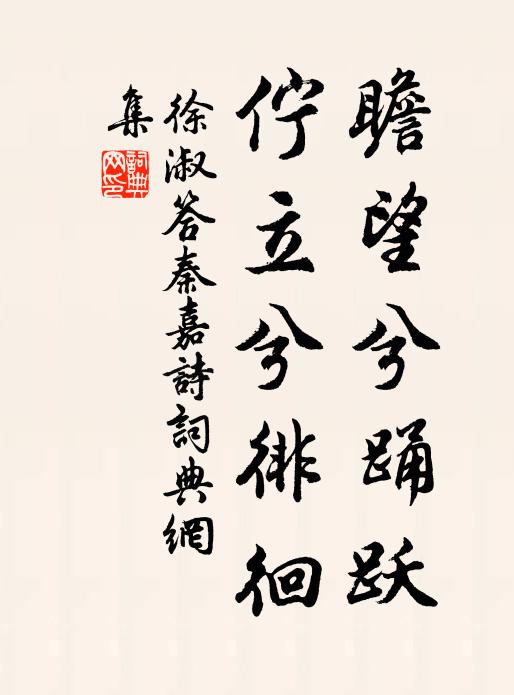 瞻望兮踊跃
佇立兮徘徊
徐淑答秦嘉詩詞典網
集
詞典
网印